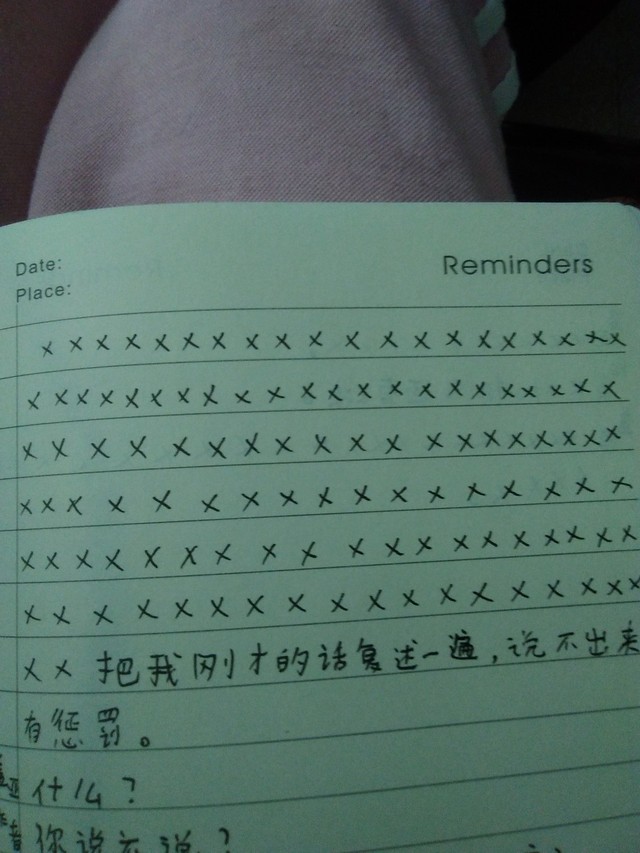 Date:
Reminders
Place:
× × × × × × × × × × × × × × × × × × × ×
× × × × × × × × × × × × × × × × × × × × × ×
× × × × × × × × × × × × × × × × × × ×
× × × × × × × × × × × × × × × × ×
× × × × × × × × × × × × × × × × × × ×
× × × × × × × × × × × × × × × × × ×
× × 把我刚才的话复述一遍，说不出来
有惩罚。
什么？
你说不说？